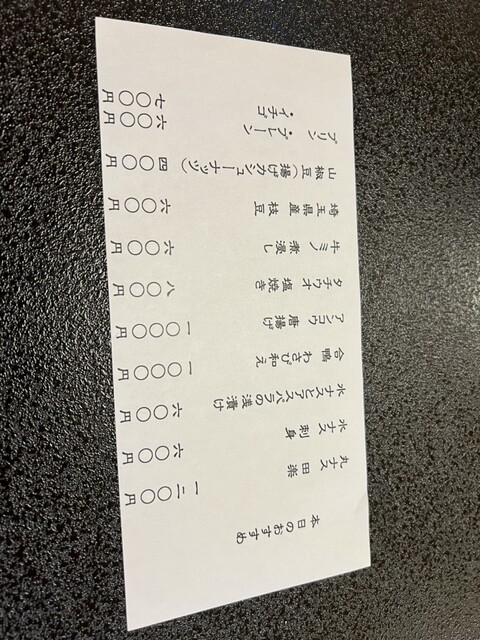 本日のおすすめ
丸ナス 田楽 一二〇〇円
水ナス 刺身 六〇〇円
水ナスとアスパラの浅漬け 六〇〇円
合鴨 わさび和え 一〇〇〇円
アンコウ 唐揚げ 一〇〇〇円
タチウオ 塩焼き 八〇〇円
牛ミノ 煮浸し 六〇〇円
埼玉県産 枝豆 六〇〇円
山椒豆(揚げカシューナッツ) 四〇〇円
プリン ・プレーン 六〇〇円
・イチゴ 七〇〇円